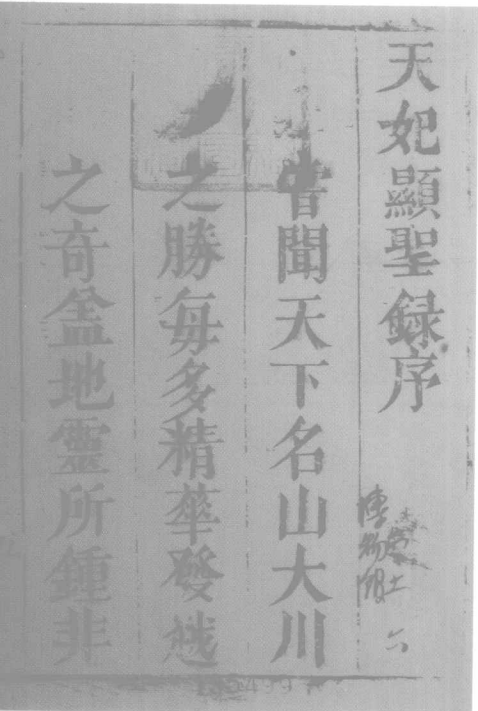 天妃顯聖録序
嘗聞天下名山大川
之勝每多精華發越
之奇盖地靈所鍾非